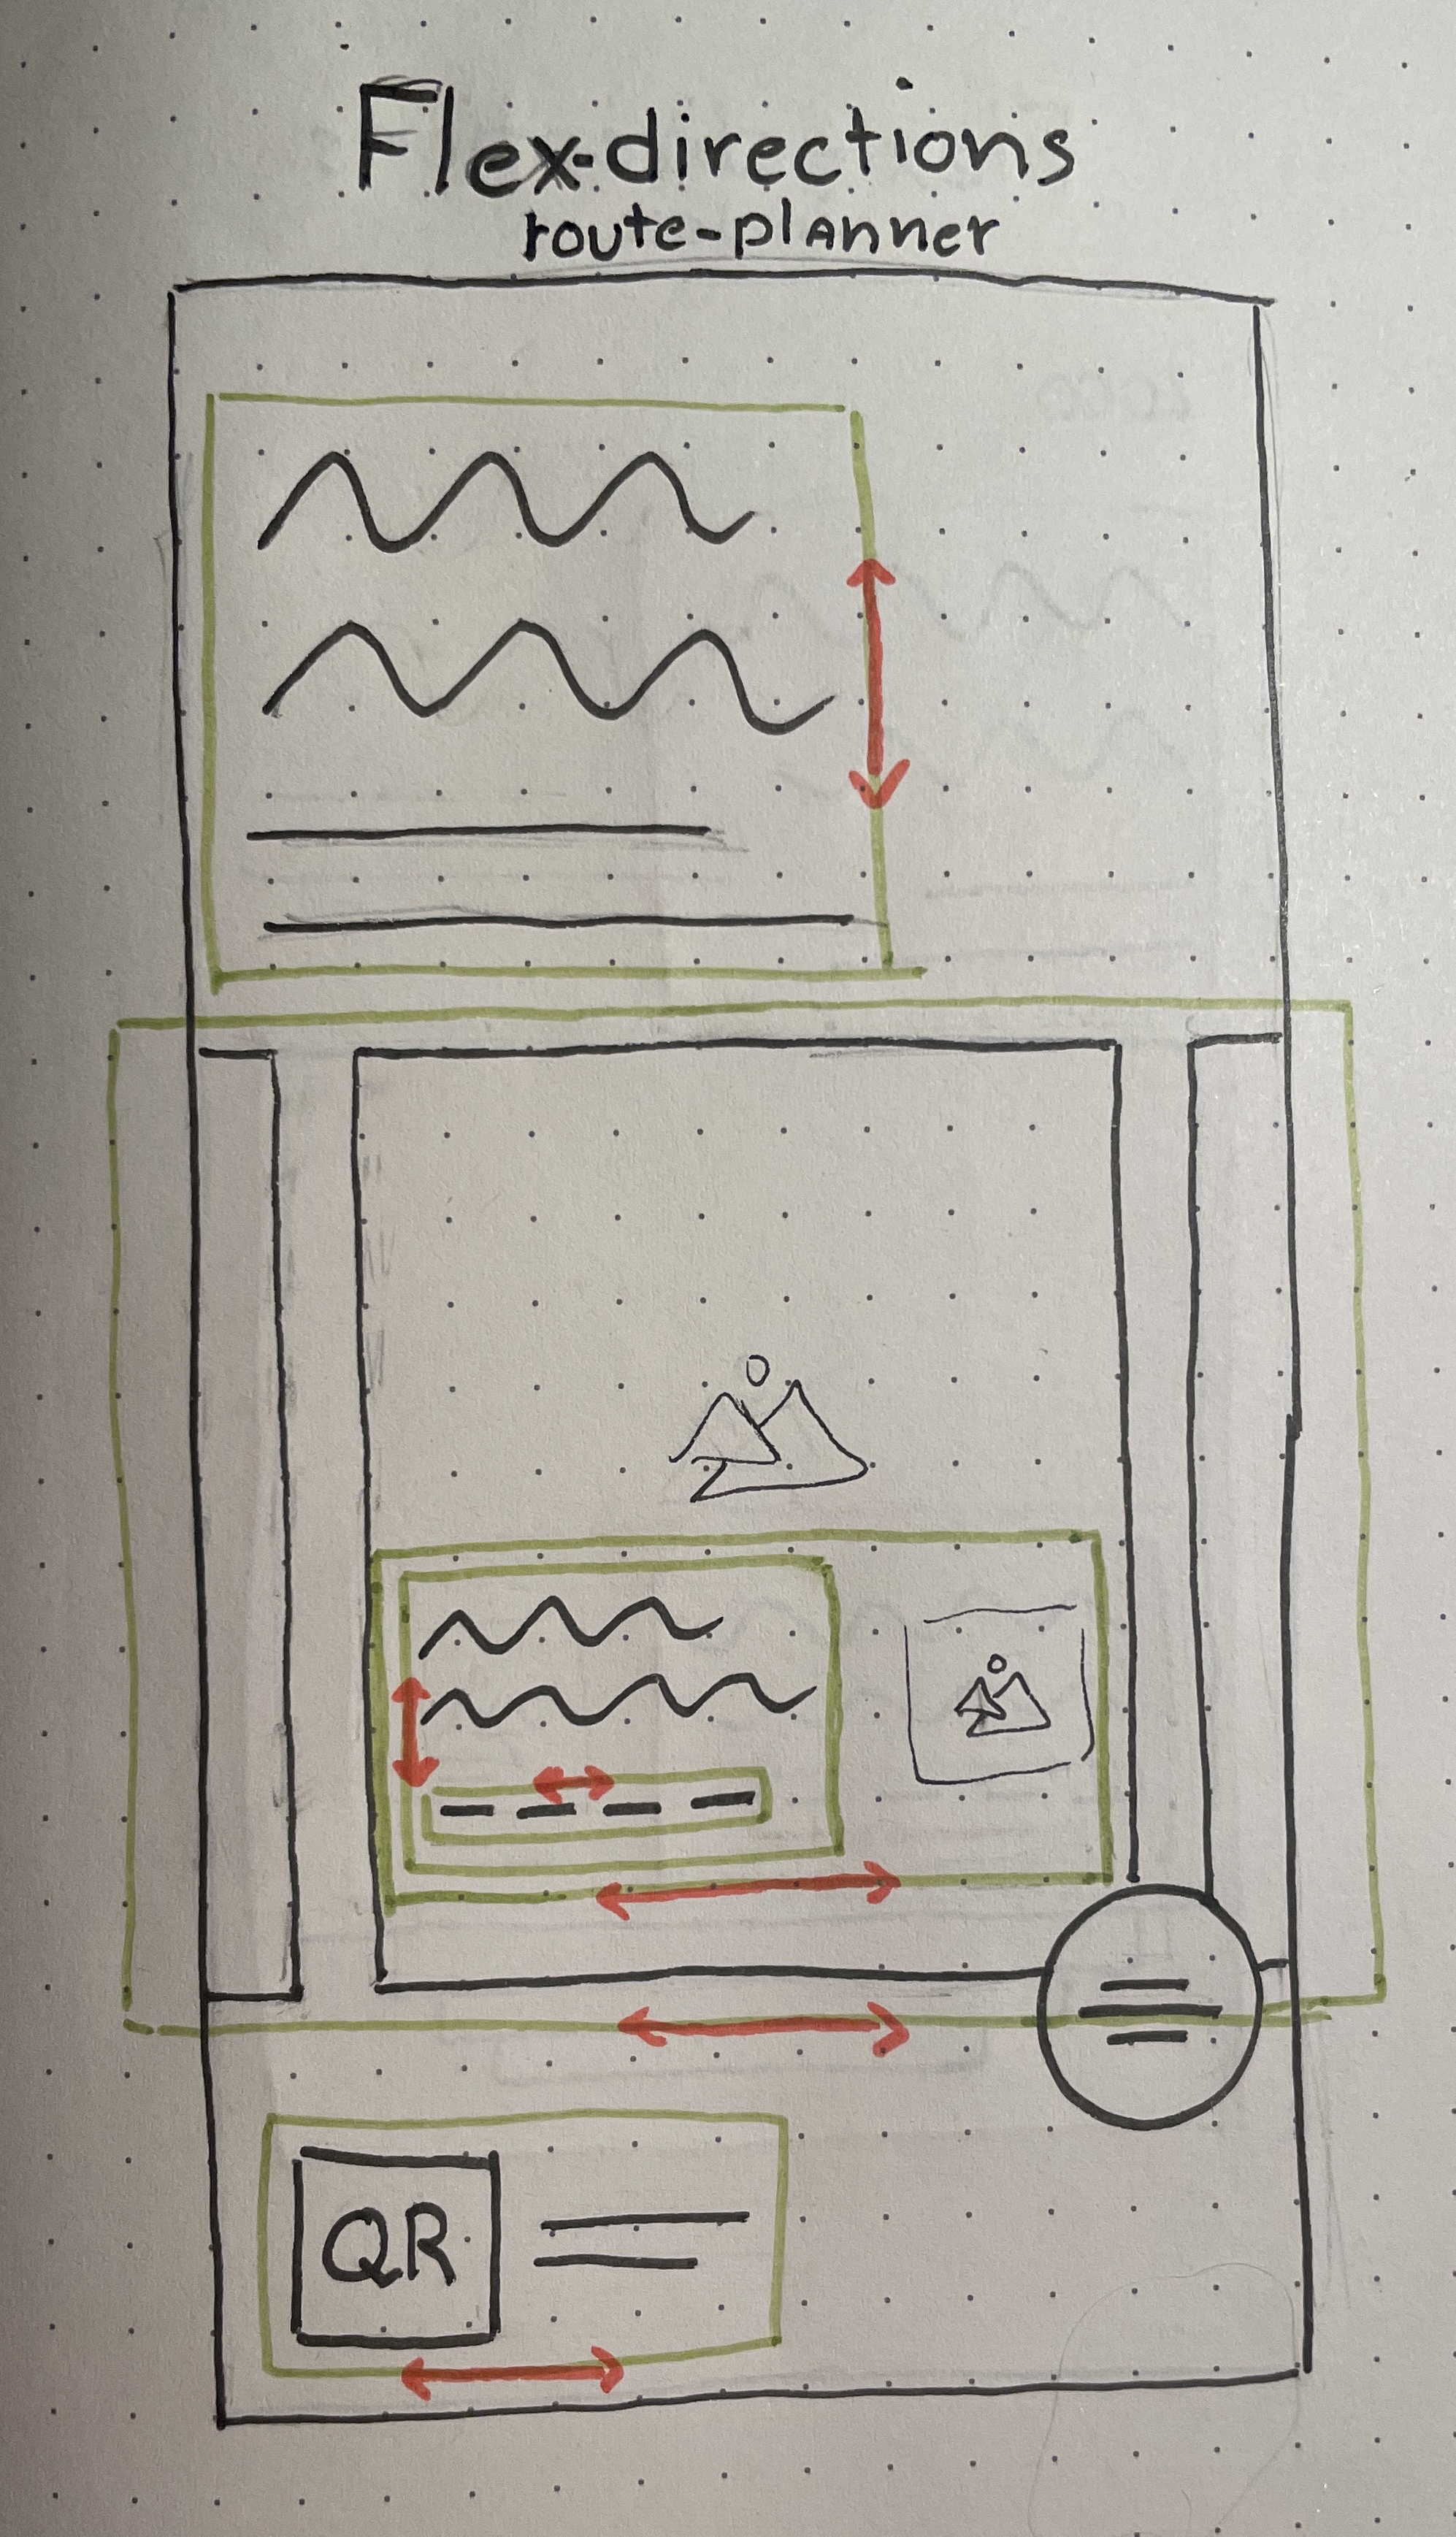 Flex-directions
route-planner
QR